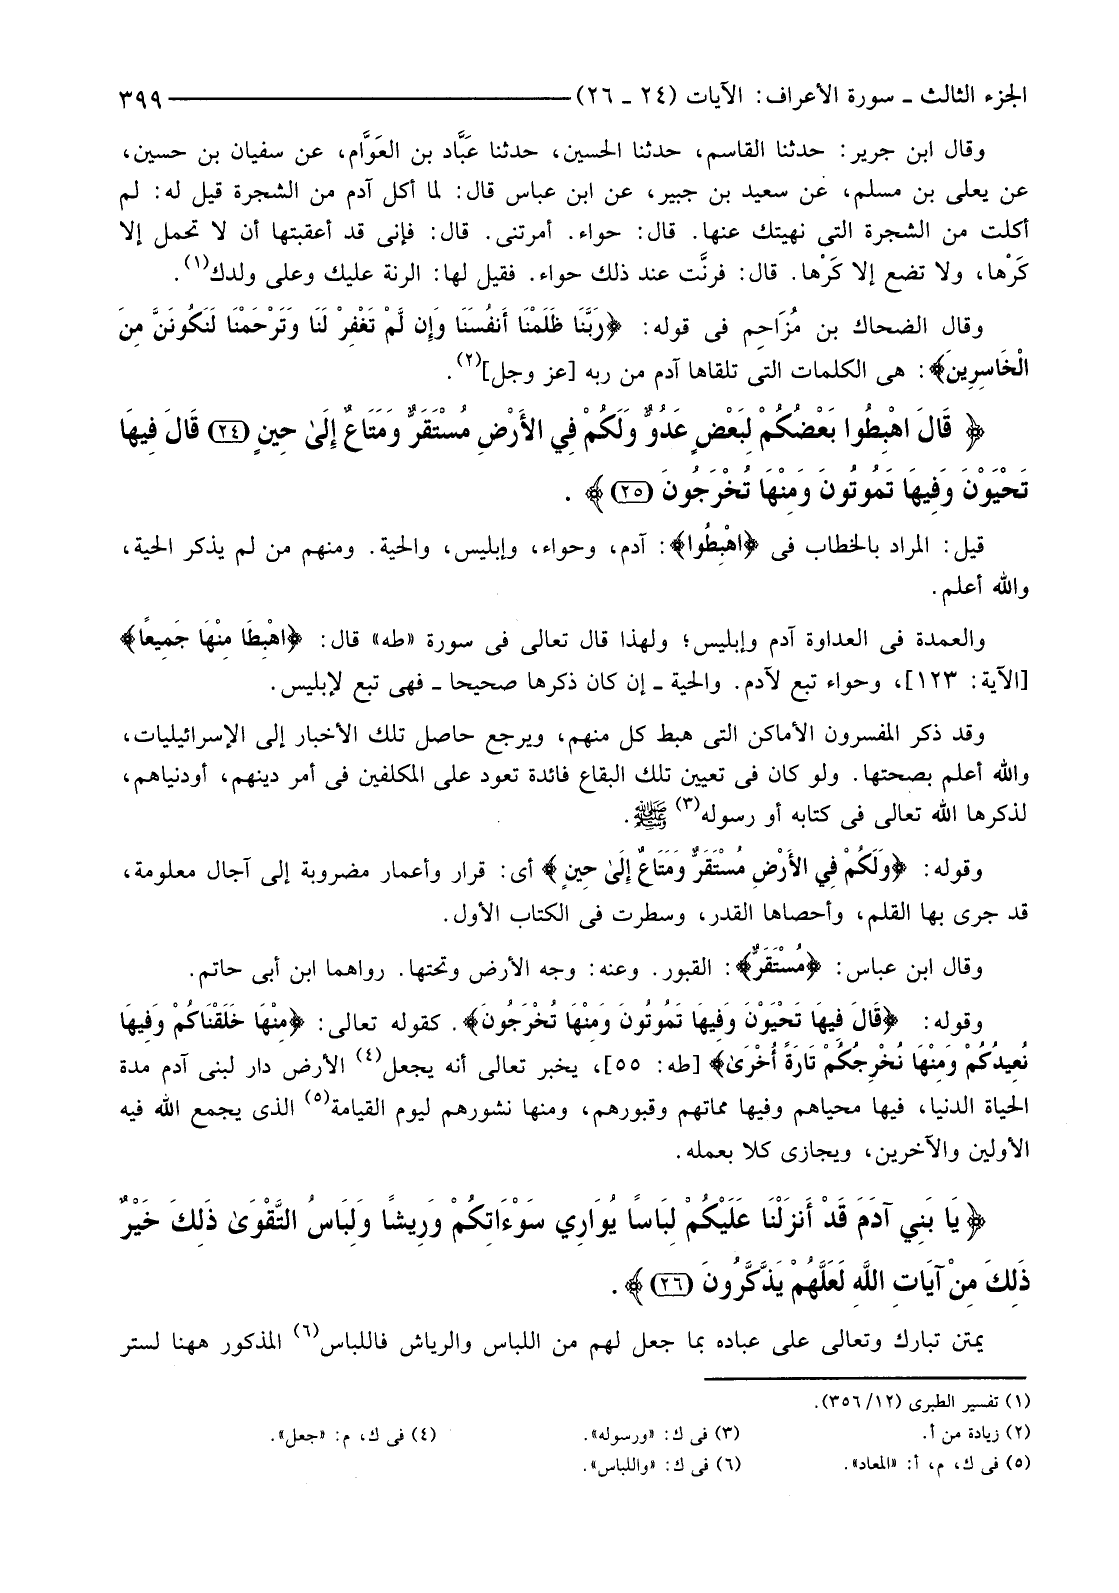 الجزء الثالث ـ سورة الأعراف: الآيات (٢٤ ـ ٢٦) ٣٩٩
وقال ابن جرير: حدثنا القاسم، حدثنا الحسين، حدثنا عَبَّاد بن العَوَّام، عن سفيان بن حسين،
عن يعلى بن مسلم، عن سعيد بن جبير، عن ابن عباس قال: لما أكل آدم من الشجرة قيل له: لم
أكلت من الشجرة التى نهيتك عنها. قال: حواء. أمرتنى. قال: فإنى قد أعقبتها أن لا تحمل إلا
كَرْها، ولا تضع إلا كَرْها. قال: فرنَّت عند ذلك حواء. فقيل لها: الرنة عليك وعلى ولدك(١).
وقال الضحاك بن مُزَاحِم فى قوله: ﴿رَبَّنَا ظَلَمْنَا أَنفُسَنَا وَإِن لَّمْ تَغْفِرْ لَنَا وَتَرْحَمْنَا لَنَكُونَنَّ مِنَ
الْخَاسِرِينَ﴾: هى الكلمات التى تلقاها آدم من ربه [عز وجل](٢).
﴿ قَالَ اهْبِطُوا بَعْضُكُمْ لِبَعْضٍ عَدُوٌّ وَلَكُمْ فِي الأَرْضِ مُسْتَقَرٌّ وَمَتَاعٌ إِلَىٰ حِينٍ (٢٤) قَالَ فِيهَا
تَحْيَوْنَ وَفِيهَا تَمُوتُونَ وَمِنْهَا تُخْرَجُونَ (٢٥) ﴾ .
قيل: المراد بالخطاب فى ﴿اهْبِطُوا﴾: آدم، وحواء، وإبليس، والحية. ومنهم من لم يذكر الحية،
والله أعلم.
والعمدة فى العداوة آدم وإبليس؛ ولهذا قال تعالى فى سورة «طه» قال: ﴿اهْبِطَا مِنْهَا جَمِيعًا﴾
[الآية: ١٢٣]، وحواء تبع لآدم. والحية ـ إن كان ذكرها صحيحا ـ فهى تبع لإبليس.
وقد ذكر المفسرون الأماكن التى هبط كل منهم، ويرجع حاصل تلك الأخبار إلى الإسرائيليات،
والله أعلم بصحتها. ولو كان فى تعيين تلك البقاع فائدة تعود على المكلفين فى أمر دينهم، أودنياهم،
لذكرها الله تعالى فى كتابه أو رسوله(٣) ﷺ.
وقوله: ﴿وَلَكُمْ فِي الأَرْضِ مُسْتَقَرٌّ وَمَتَاعٌ إِلَىٰ حِينٍ ﴾ أى: قرار وأعمار مضروبة إلى آجال معلومة،
قد جرى بها القلم، وأحصاها القدر، وسطرت فى الكتاب الأول.
وقال ابن عباس: ﴿مُسْتَقَرٌّ﴾: القبور. وعنه: وجه الأرض وتحتها. رواهما ابن أبى حاتم.
وقوله: ﴿قَالَ فِيهَا تَحْيَوْنَ وَفِيهَا تَمُوتُونَ وَمِنْهَا تُخْرَجُونَ﴾. كقوله تعالى: ﴿مِنْهَا خَلَقْنَاكُمْ وَفِيهَا
نُعِيدُكُمْ وَمِنْهَا نُخْرِجُكُمْ تَارَةً أُخْرَىٰ﴾ [طه: ٥٥]، يخبر تعالى أنه يجعل(٤) الأرض دار لبنى آدم مدة
الحياة الدنيا، فيها محياهم وفيها مماتهم وقبورهم، ومنها نشورهم ليوم القيامة(٥) الذى يجمع الله فيه
الأولين والآخرين، ويجازى كلا بعمله.
﴿ يَا بَنِي آدَمَ قَدْ أَنزَلْنَا عَلَيْكُمْ لِبَاسًا يُوَارِي سَوْءَاتِكُمْ وَرِيشًا وَلِبَاسُ التَّقْوَىٰ ذَلِكَ خَيْرٌ
ذَلِكَ مِنْ آيَاتِ اللَّهِ لَعَلَّهُمْ يَذَّكَّرُونَ (٢٦) ﴾ .
يمتن تبارك وتعالى على عباده بما جعل لهم من اللباس والرياش فاللباس(٦) المذكور ههنا لستر
(١) تفسير الطبرى (١٢/ ٣٥٦).
(٢) زيادة من أ. (٣) فى ك: «ورسوله». (٤) فى ك، م: «جعل».
(٥) فى ك، م، أ: «المعاد». (٦) فى ك: «واللباس».